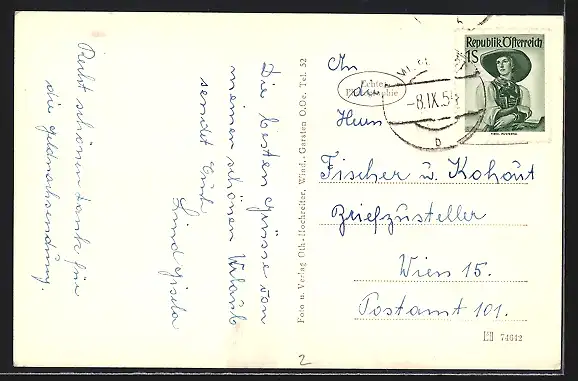 Die besten Grüsse von
meinen schönen Urlaub
sendet Euch
Lind Gisela
Recht schönen Dank für
die Geldnachsendung.
Foto u. Verlag Oth.-Hochreiter, Wind.-Garsten O.Oe. Tel. 52
Echte
Photographie
-8.IX.54
b
Republik Österreich
1S
An
die
Herrn
Fischer u. Kohout
Briefzusteller
Wien 15.
Postamt 101.
74642
2